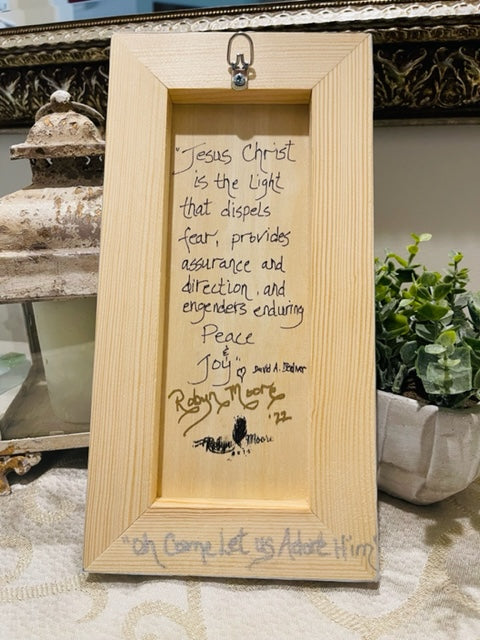 "Jesus Christ
is the Light
that dispels
fear, provides
assurance and
direction, and
engenders enduring
Peace
&
Joy" David A. Bednar
Robyn Moore
'22
Robyn Moore
"Oh Come Let us Adore Him"